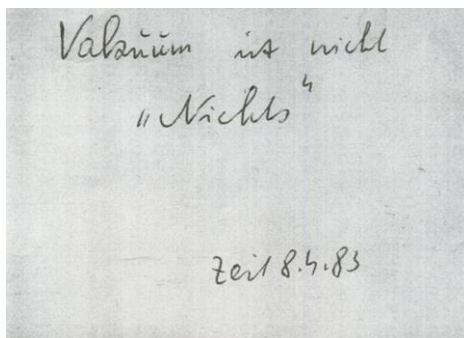 Vakuum ist nicht
„Nichts“
Zeit 8.4.83